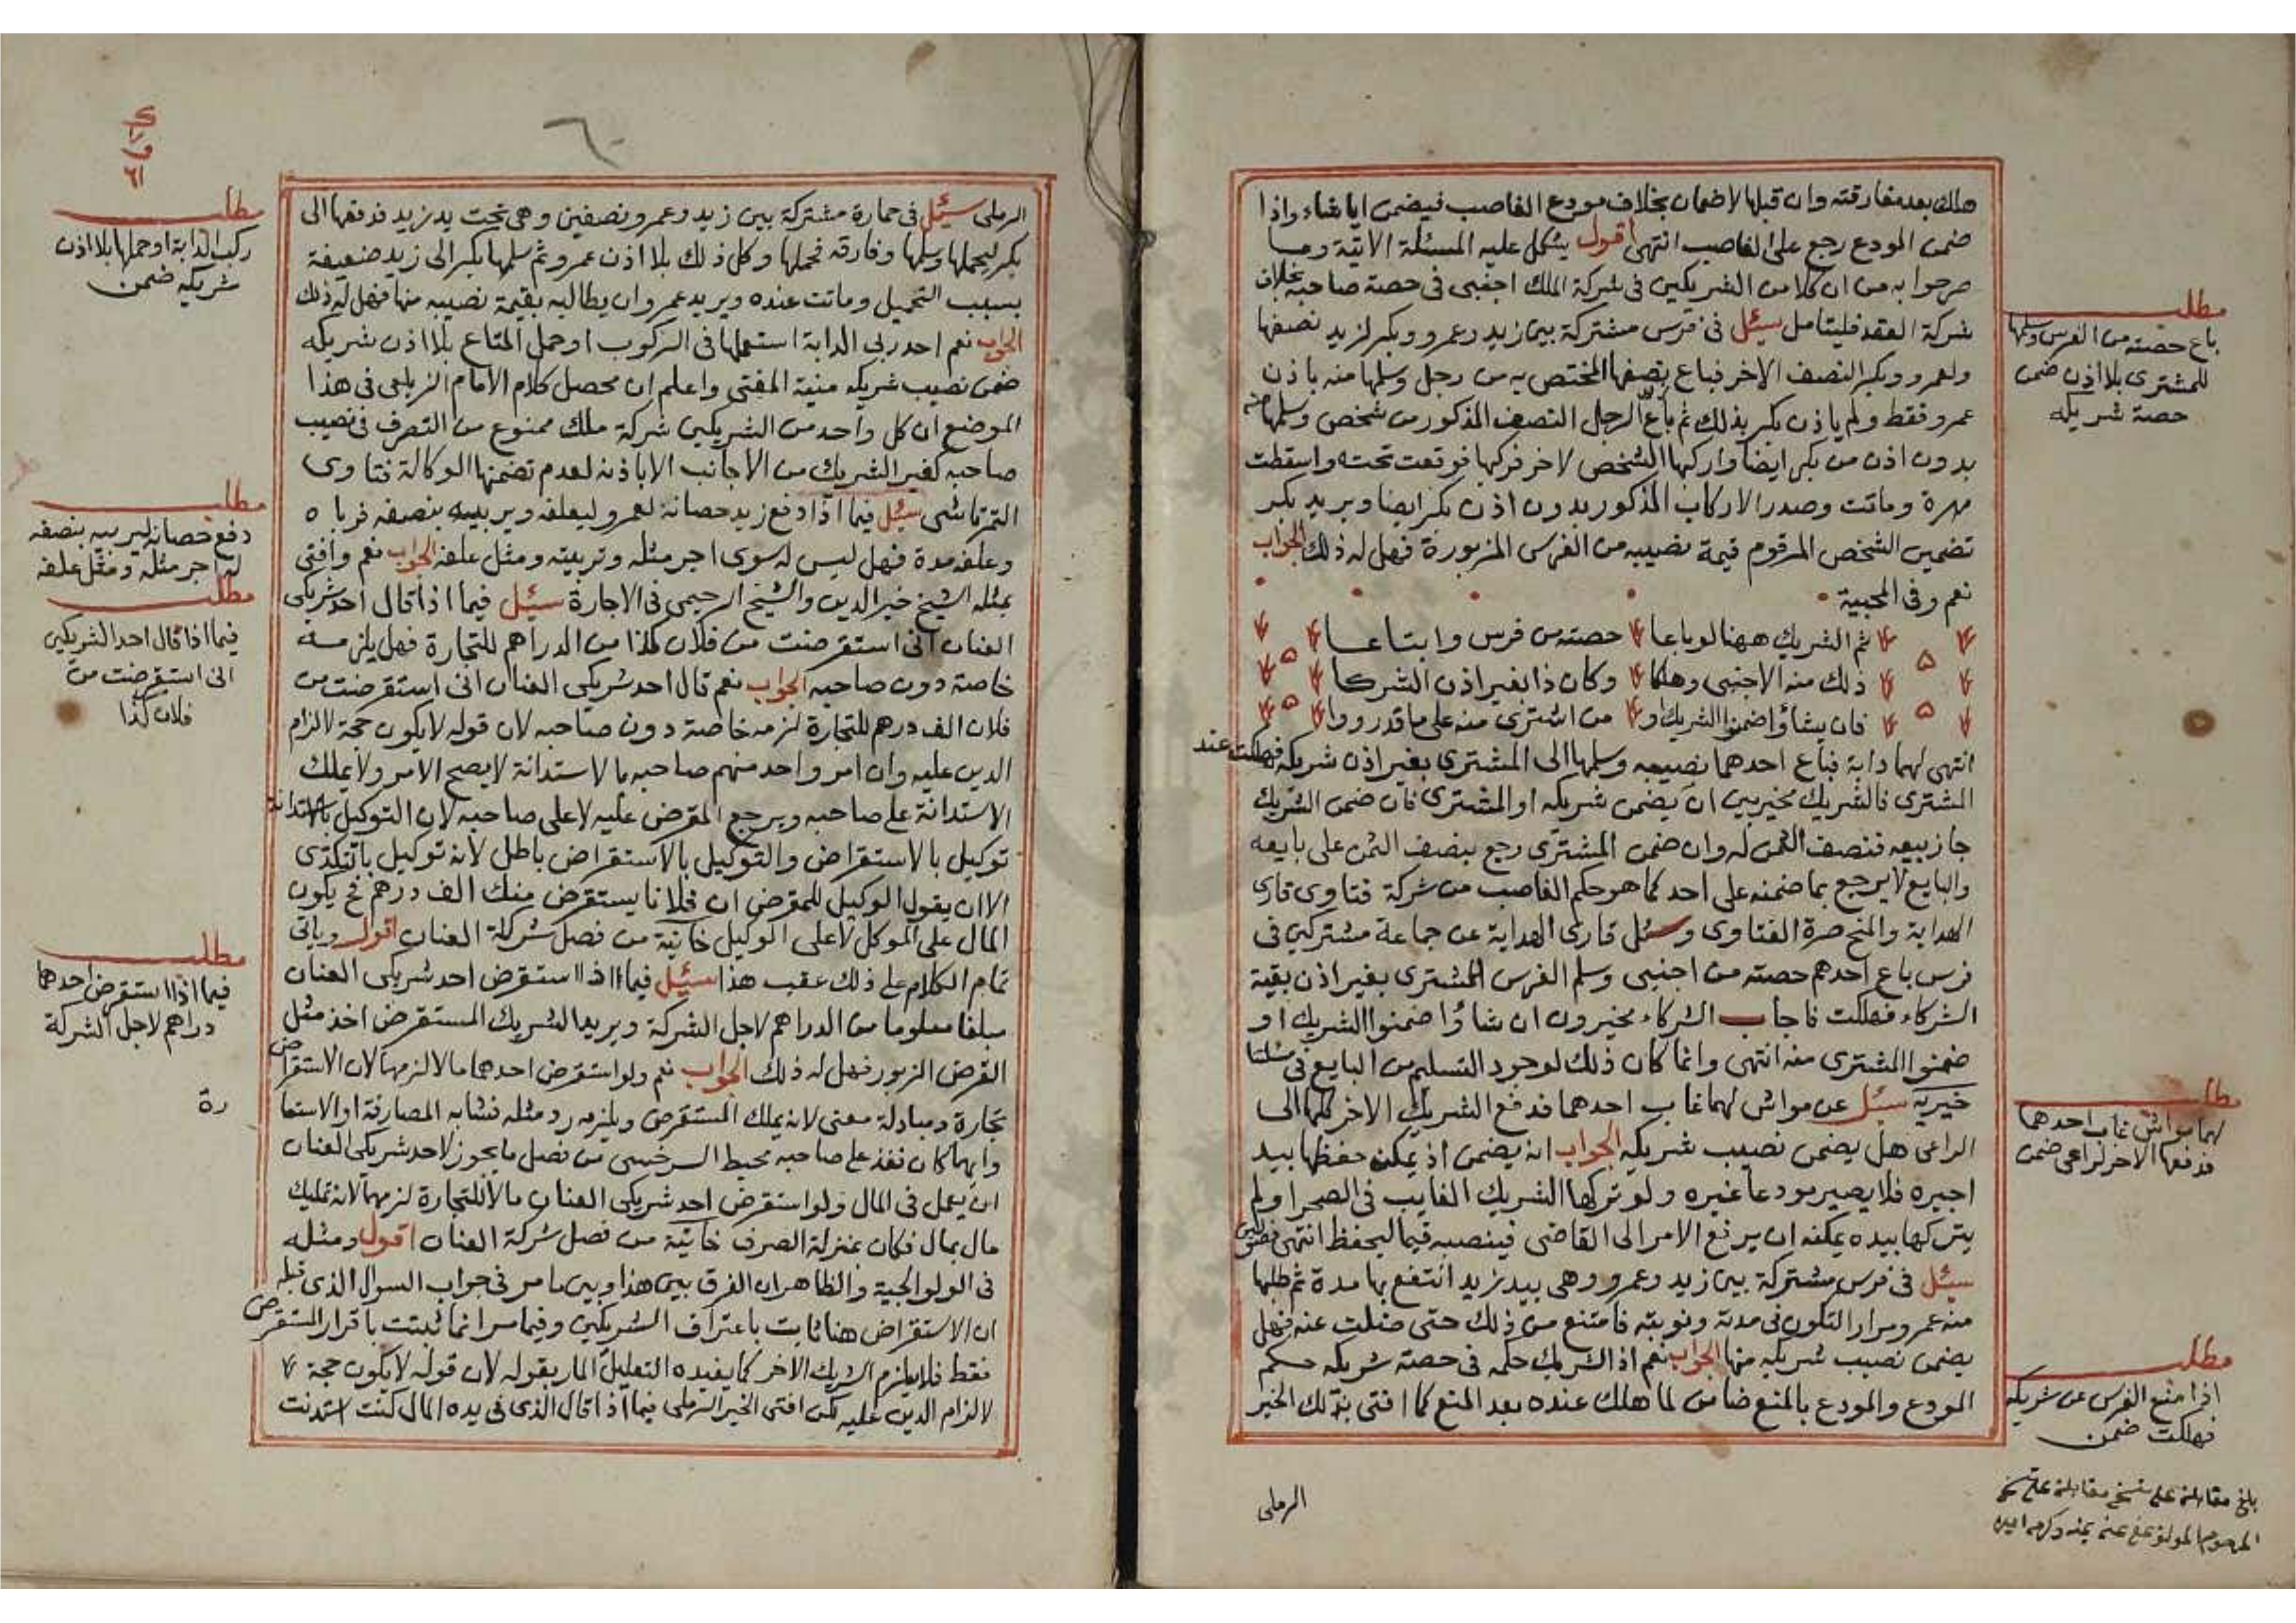 هلك بعد مفارقته وان قبلها لاضمان بخلاف مودع الغاصب فيضمن ايا شاء واذا
ضمن المودع رجع على الغاصب انتهى اقول يشكل عليه المسئلة الاتية وما
صرحوا به من ان كلا من الشريكين فى شركة الملك اجنبى فى حصة صاحبه بخلاف
شركة العقد فليتامل سئل فى فرس مشتركة بين زيد وعمرو وبكر لزيد نصفها
ولعمرو وبكر النصف الاخر فباع نصفها المختص به من رجل وسلمها منه باذن
عمرو فقط ولم ياذن بكر بذلك ثم باع الرجل النصف المذكور من شخص وسلمها منه
بدون اذن من بكر ايضا واركبها الشخص لاخر فركبها فوقعت تحته واسقطت
مهرة وماتت وصدر الاركاب المذكور بدون اذن بكر ايضا ويريد بكر
تضمين الشخص المرقوم قيمة نصيبه من الفرس المزبورة فهل له ذلك الجواب
نعم وفى المحبية
ثم الشريك ههنا لو باعا حصته من فرس وابتاعا
ذلك منه الاجنبى وهلكا وكان ذا بغير اذن الشركا
فان يشاؤا ضمنوا الشريك او من اشترى منه على ما قدر ووا
انتهى لهما دابة فباع احدهما نصيبه وسلمها الى المشترى بغير اذن شريكه فهلكت عند
المشترى فالشريك مخير بين ان يضمن شريكه او المشترى فان ضمن الشريك
جاز بيعه فنصف الثمن له وان ضمن المشترى رجع بنصف الثمن على بايعه
والبايع لا يرجع بما ضمنه على احد كما هو حكم الغاصب من شركة فتاوى قارى
الهداية والمنح صرة الفتاوى وسئل قارى الهداية عن جماعة مشتركين فى
فرس باع احدهم حصته من اجنبى وسلم الفرس للمشترى بغير اذن بقية
الشركاء فهلكت فاجاب الشركاء مخيرون ان شاؤا ضمنوا الشريك او
ضمنوا المشترى منه انتهى وانما كان ذلك لوجود التسليم من البايع فى مسئلتنا
خيرية سئل عن مواش لهما غاب احدهما فدفع الشريك الاخر كلها الى
الراعى هل يضمن نصيب شريكه الجواب انه يضمن اذ يمكنه حفظها بيد
اجيره فلا يصير مودعا غيره ولو تركها الشريك الغايب فى الصحرا ولم
يتركها بيده يمكنه ان يرفع الامر الى القاضى فينصبه قيما ليحفظ انتهى
سئل فى فرس مشتركة بين زيد وعمرو وهى بيد زيد انتفع بها مدة ثم طلبها
منه عمرو مرارا لتكون فى مدته ونوبته فامتنع من ذلك حتى ضلت عنه فهل
يضمن نصيب شريكه منها الجواب نعم اذ الشريك حكمه فى حصة شريكه حكم
المودع والمودع بالمنع ضامن لما هلك عنده بعد المنع كما افتى بذلك الخير
الرملى
مطلب
باع حصته من الفرس وسلمها
للمشترى بلا اذن ضمن
حصة شريكه
مطلب
لهما مواش غاب احدهما
فدفعها الاخر لراعى ضمن
مطلب
اذا منع الفرس عن شريكه
فهلكت ضمن
بلغ مقابلة على نسخة مقابلة على نسخة
المرحوم المولف عفى عنه بمنه وكرمه امين
الرملى سئل فى حمارة مشتركة بين زيد وعمرو نصفين وهى تحت يد زيد فدفعها الى
بكر ليحملها وسلمها وفارقه فحملها وكل ذلك بلا اذن عمرو ثم سلمها بكر الى زيد ضعيفة
بسبب التحميل وماتت عنده ويريد عمرو ان يطالبه بقيمة نصيبه منها فهل له ذلك
الجواب نعم احد ربى الدابة استعملها فى الركوب او حمل المتاع بلا اذن شريكه
ضمن نصيب شريكه منية المفتى واعلم ان محصل كلام الامام الزيلعى فى هذا
الموضع ان كل واحد من الشريكين شركة ملك ممنوع من التصرف فى نصيب
صاحبه كغير الشريك من الاجانب الا باذنه لعدم تضمنها الوكالة فتاوى
التمرتاشى سئل فيما اذا دفع زيد حصانه لعمرو ليعلفه ويربيه بنصفه فرباه
وعلفه مدة فهل ليس له سوى اجر مثله وتربيته ومثل علفه الجواب نعم وافتى
بمثله الشيخ خير الدين والشيخ الرحيمى فى الاجارة سئل فيما اذا قال احد شريكى
العنان انى استقرضت من فلان كذا من الدراهم للتجارة فهل يلزمه
خاصة دون صاحبه الجواب نعم قال احد شريكى العنان انى استقرضت من
فلان الف درهم للتجارة لزمه خاصة دون صاحبه لان قوله لا يكون حجة لالزام
الدين عليه وان امر واحد منهم صاحبه بالاستدانة لا يصح الامر ولا يملك
الاستدانة على صاحبه ويرجع المقرض عليه لا على صاحبه لان التوكيل بالاستدانة
توكيل بالاستقراض والتوكيل بالاستقراض باطل لانه توكيل بالتكدى
الا ان يقول الوكيل للمقرض ان فلانا يستقرض منك الف درهم فح يكون
المال على الموكل لا على الوكيل خانية من فصل شركة العنان اقول وياتى
تمام الكلام على ذلك عقب هذا سئل فيما اذا استقرض احد شريكى العنان
مبلغا معلوما من الدراهم لاجل الشركة ويريد الشريك المستقرض اخذ مثل
القرض المزبور فهل له ذلك الجواب نعم ولو استقرض احدهما مالا لزمهما لان الاستقراض
تجارة ومبادلة معنى لانه يملك المستقرض ويلزمه رد مثله فشابه المصارفة او الاستعارة
وايهما كان نفذ على صاحبه محيط السرخسى من فصل ما يجوز لاحد شريكى العنان
ان يعمل فى المال ولو استقرض احد شريكى العنان مالا للتجارة لزمهما لانه تمليك
مال بمال فكان بمنزلة الصرف خانية من فصل شركة العنان اقول ومثله
فى الولوالجية والظاهر ان الفرق بين هذا وبين ما مر فى جواب السوال الذى قبله
ان الاستقراض هنا ثابت باعتراف الشريكين وفيما مر انما ثبتت باقرار المستقرض
فقط فلا يلزم الشريك الاخر كما يفيده التعليل المار بقوله لان قوله لا يكون حجة
لالزام الدين عليه لكن افتى الخير الرملى فيما اذا قال الذى فى يده المال كنت استدنت
مطلب
ركب الدابة او حملها بلا اذن
شريكه ضمن
مطلب
دفع حصانه ليربيه بنصفه
له اجر مثله ومثل علفه
مطلب
فيما اذا قال احد الشريكين
انى استقرضت من
فلان كذا
مطلب
فيما اذا استقرض احدهما
دراهم لاجل الشركة